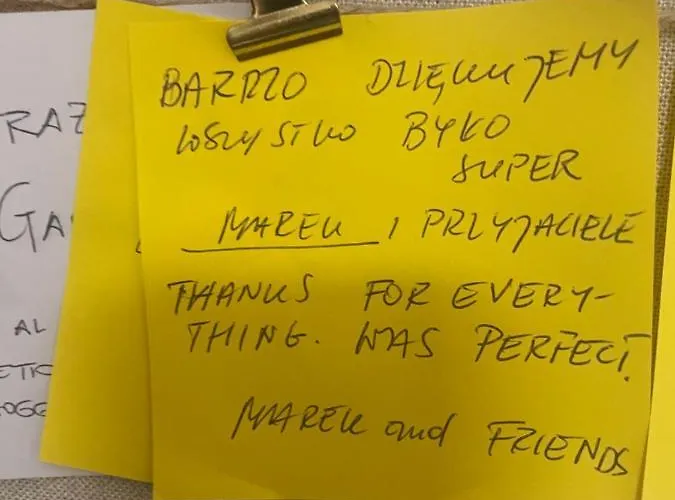 RAZ
GA
AL
ETIC
OGG
BARDZO DZIĘKUJEMY
WSZYSTKO BYŁO
SUPER
MAREK I PRZYJACIELE
THANKS FOR EVERY-
THING. WAS PERFECT.
MAREK and FRIENDS